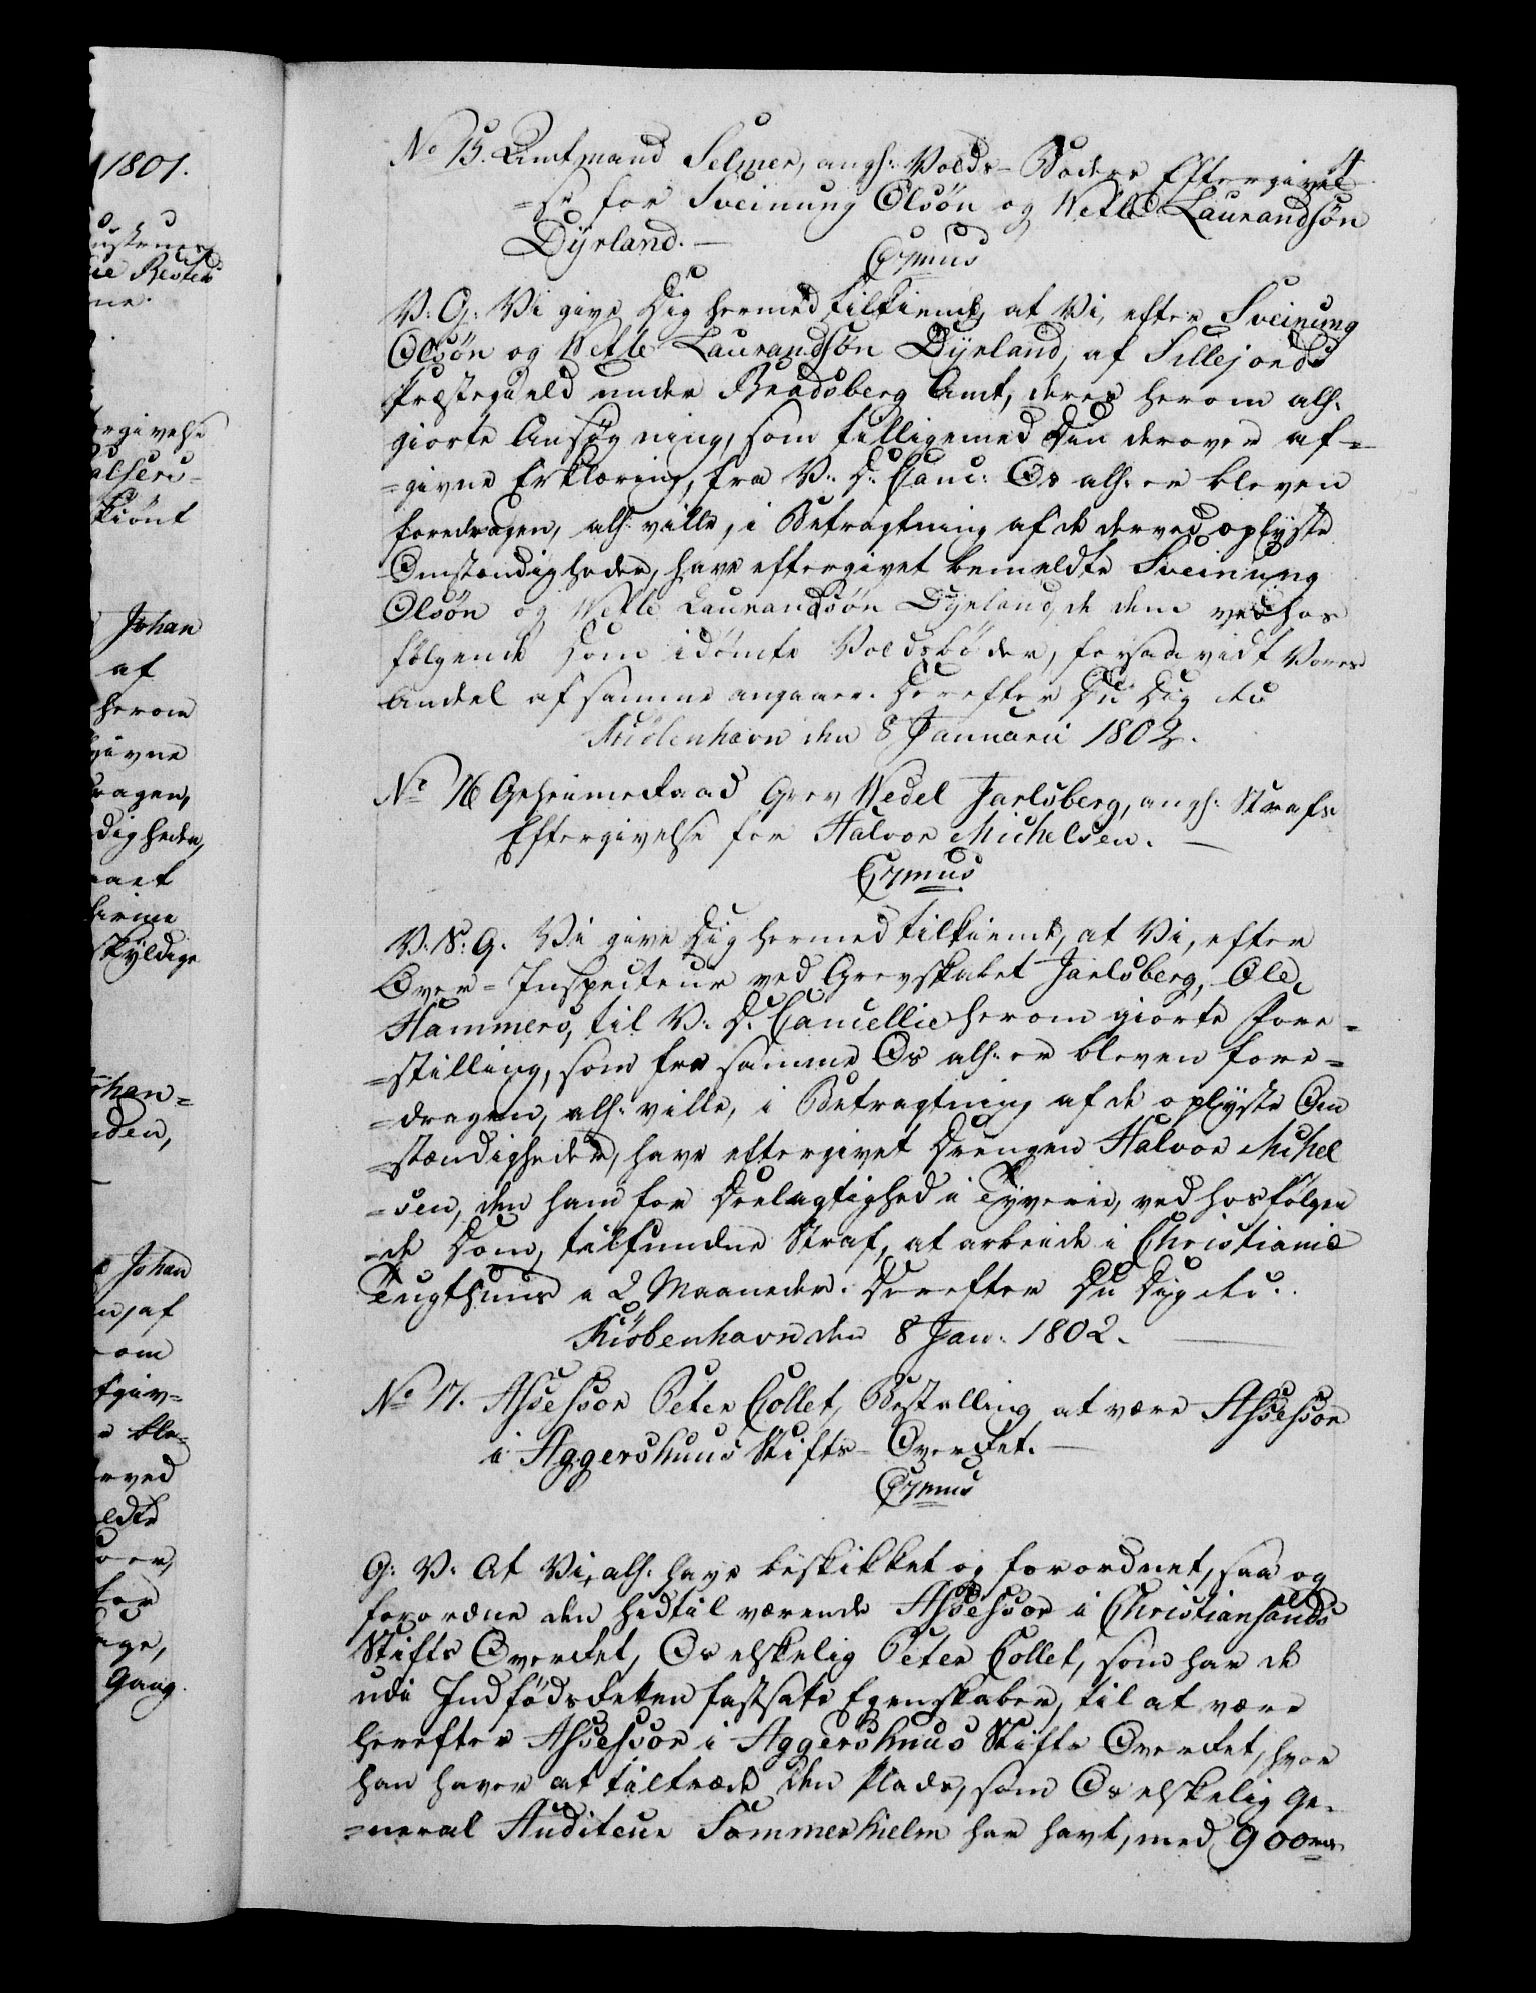 1801.
Restes
ne.
ergivelse
skiönt
Johan
af
herom
givne
dragen,
digheder,
skyldige
Johan=
nden,
Johan
n, af
om
fgiv=
e ble=
erved
eldte
for
Gang.
4
No 15. Amtmand Selmer, angl: Volds-Bøders Eftergivel
=se for Sveinung Olsön og Wetle Laurandsön
Dÿrland. —
Cr7mus
V: G: Vi give Dig hermed tilkiende, at Vi, efter Sveinung
Olsön og Wetle Laurandsön Dÿrland, af Sillejords
Præstegield under Bradsberg Amt, deres herom alh:
giorte Ansøgning, som tilligemed Din derover af=
=givne Erklæring, fra V: D: Canc: Os alh: er bleven
foredragen, alh: ville, i Betragtning af de derved oplÿste
Omstændigheder, have eftergivet bemeldte Sveinung
Olsön og Wetle Laurandsön Dÿrland, de dem ved hos
fölgende Dom idömte Voldsböder, forsaavidt Vores
Andel af samme angaaer. Derefter Du Dig etc
Kiöbenhavn den 8 Januarii 1802.
No 16 Geheimeraad Grev Wedel Jarlsberg, angl: Strafs
Eftergivelse for Halvor Michelsen. —
Cr7mus
V: S: G. Vi give Dig hermed tilkiende, at Vi, efter
Over=Inspecteur ved Grevskabet Jarlsberg, Ole
Hammers, til V: D. Cancellie herom giorte Fore=
=stilling, som fra samme Os alh: er bleven fore=
=dragen, alh: ville, i Betragtning af de oplÿste Om
=stændigheder, have eftergivet Drengen Halvor Michel
=sen, den ham for Deelagtighed i Tÿverie, ved hosfölgen
=de Dom, tilfundne Straf, at arbeide i Christiania
Tugthuus i 2 Maaneder. Derefter Du Dig etc.
Kiöbenhavn den 8 Jan: 1802. —
No 17. Assessor Peter Collet, Bestalling at være Assessor
i Aggershuus Stifts-Overret. —
Cr7mus
G: V: At Vi, alh: have beskikket og forordnet, saa og
forordne den hidtil værende Assessor i Christiansands
Stifts Overret, Os elskelig Peter Collet, som har de
udi Indfödsretten fastsatte Egenskaber, til at være
herefter Assessor i Aggershuus Stifts Overret, hvor
han haver at tiltræde den Plads, som Os elskelig Ge=
=neral Auditeur Sommerhielm har havt, med 900